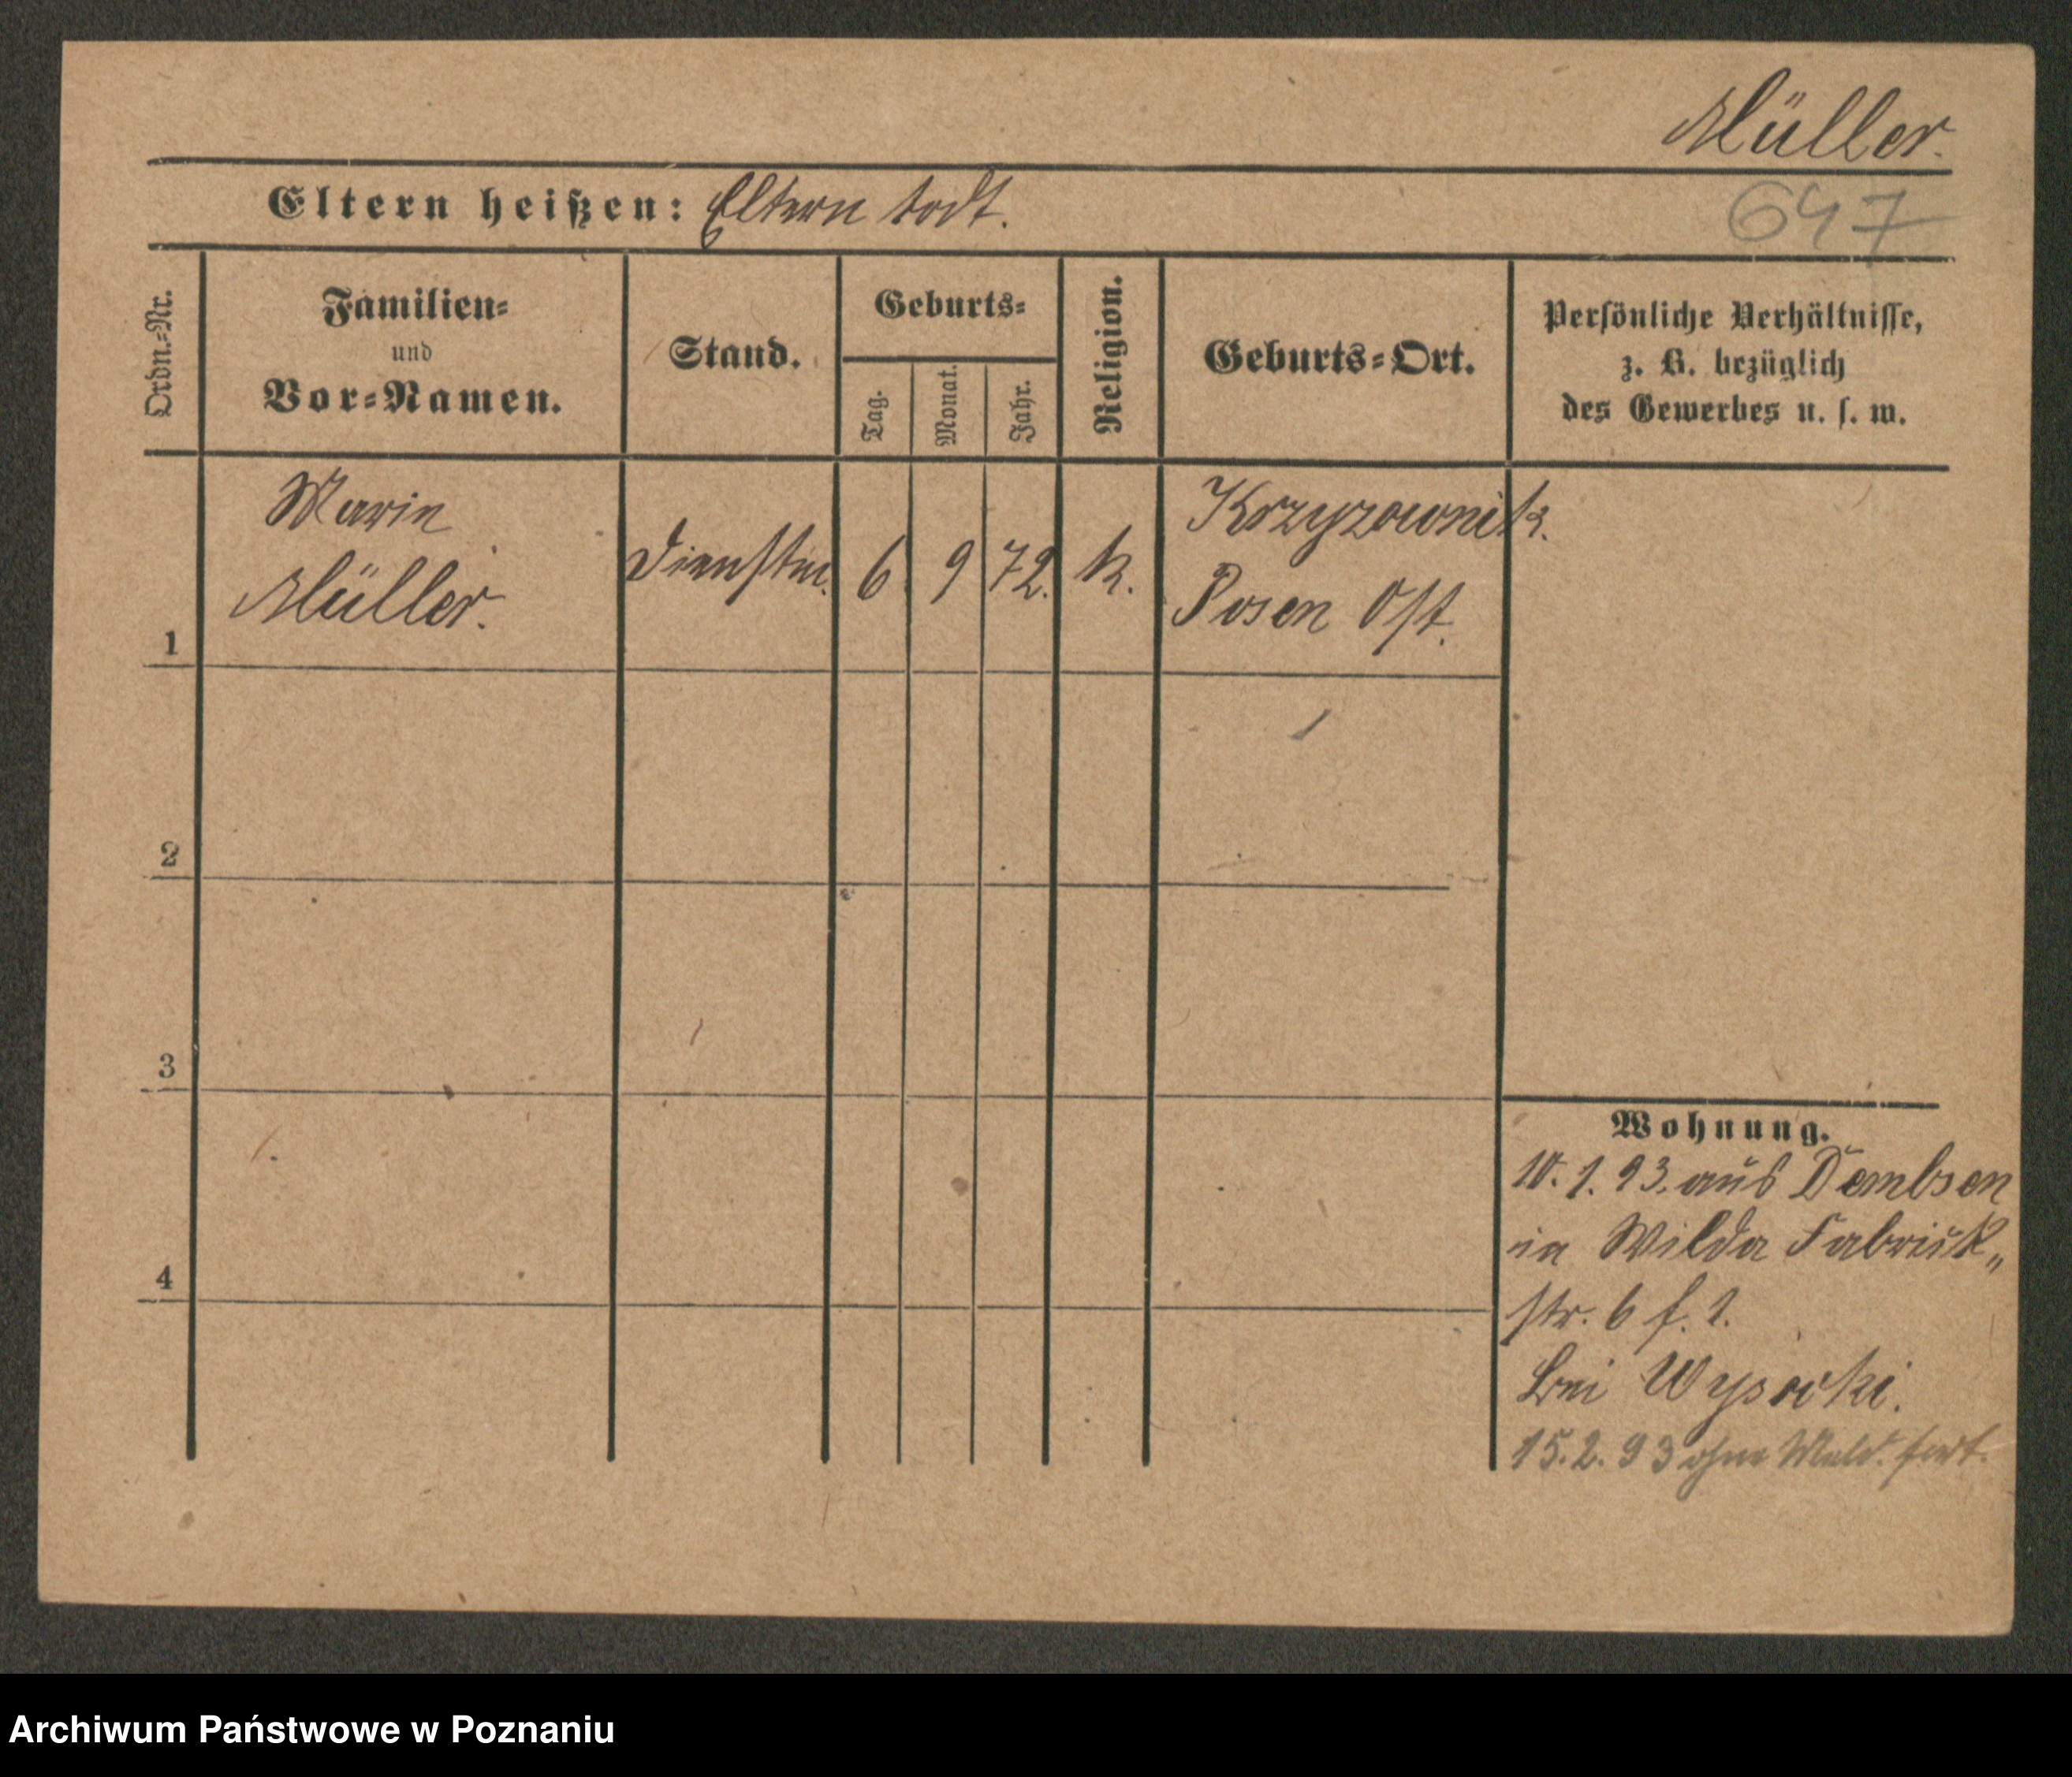 Müller.
Eltern heißen: Eltern todt.
647
Ordn.-Nr.
Familien-
und
Vor-Namen.
Stand.
Geburts-
Tag.
Monat.
Jahr.
Religion.
Geburts-Ort.
Persönliche Verhältnisse,
z. B. bezüglich
des Gewerbes u. s. w.
1
Marie
Müller.
Dienstm.
6.
9
72.
k.
Krzyzownik.
Posen Ost.
2
3
4
Wohnung.
10. 1. 93. aus Dembsen
in Wilda Fabrik„
str. 6 f. 1.
bei Wysocki.
15. 2. 93 ohne Meld. fort.
Archiwum Państwowe w Poznaniu